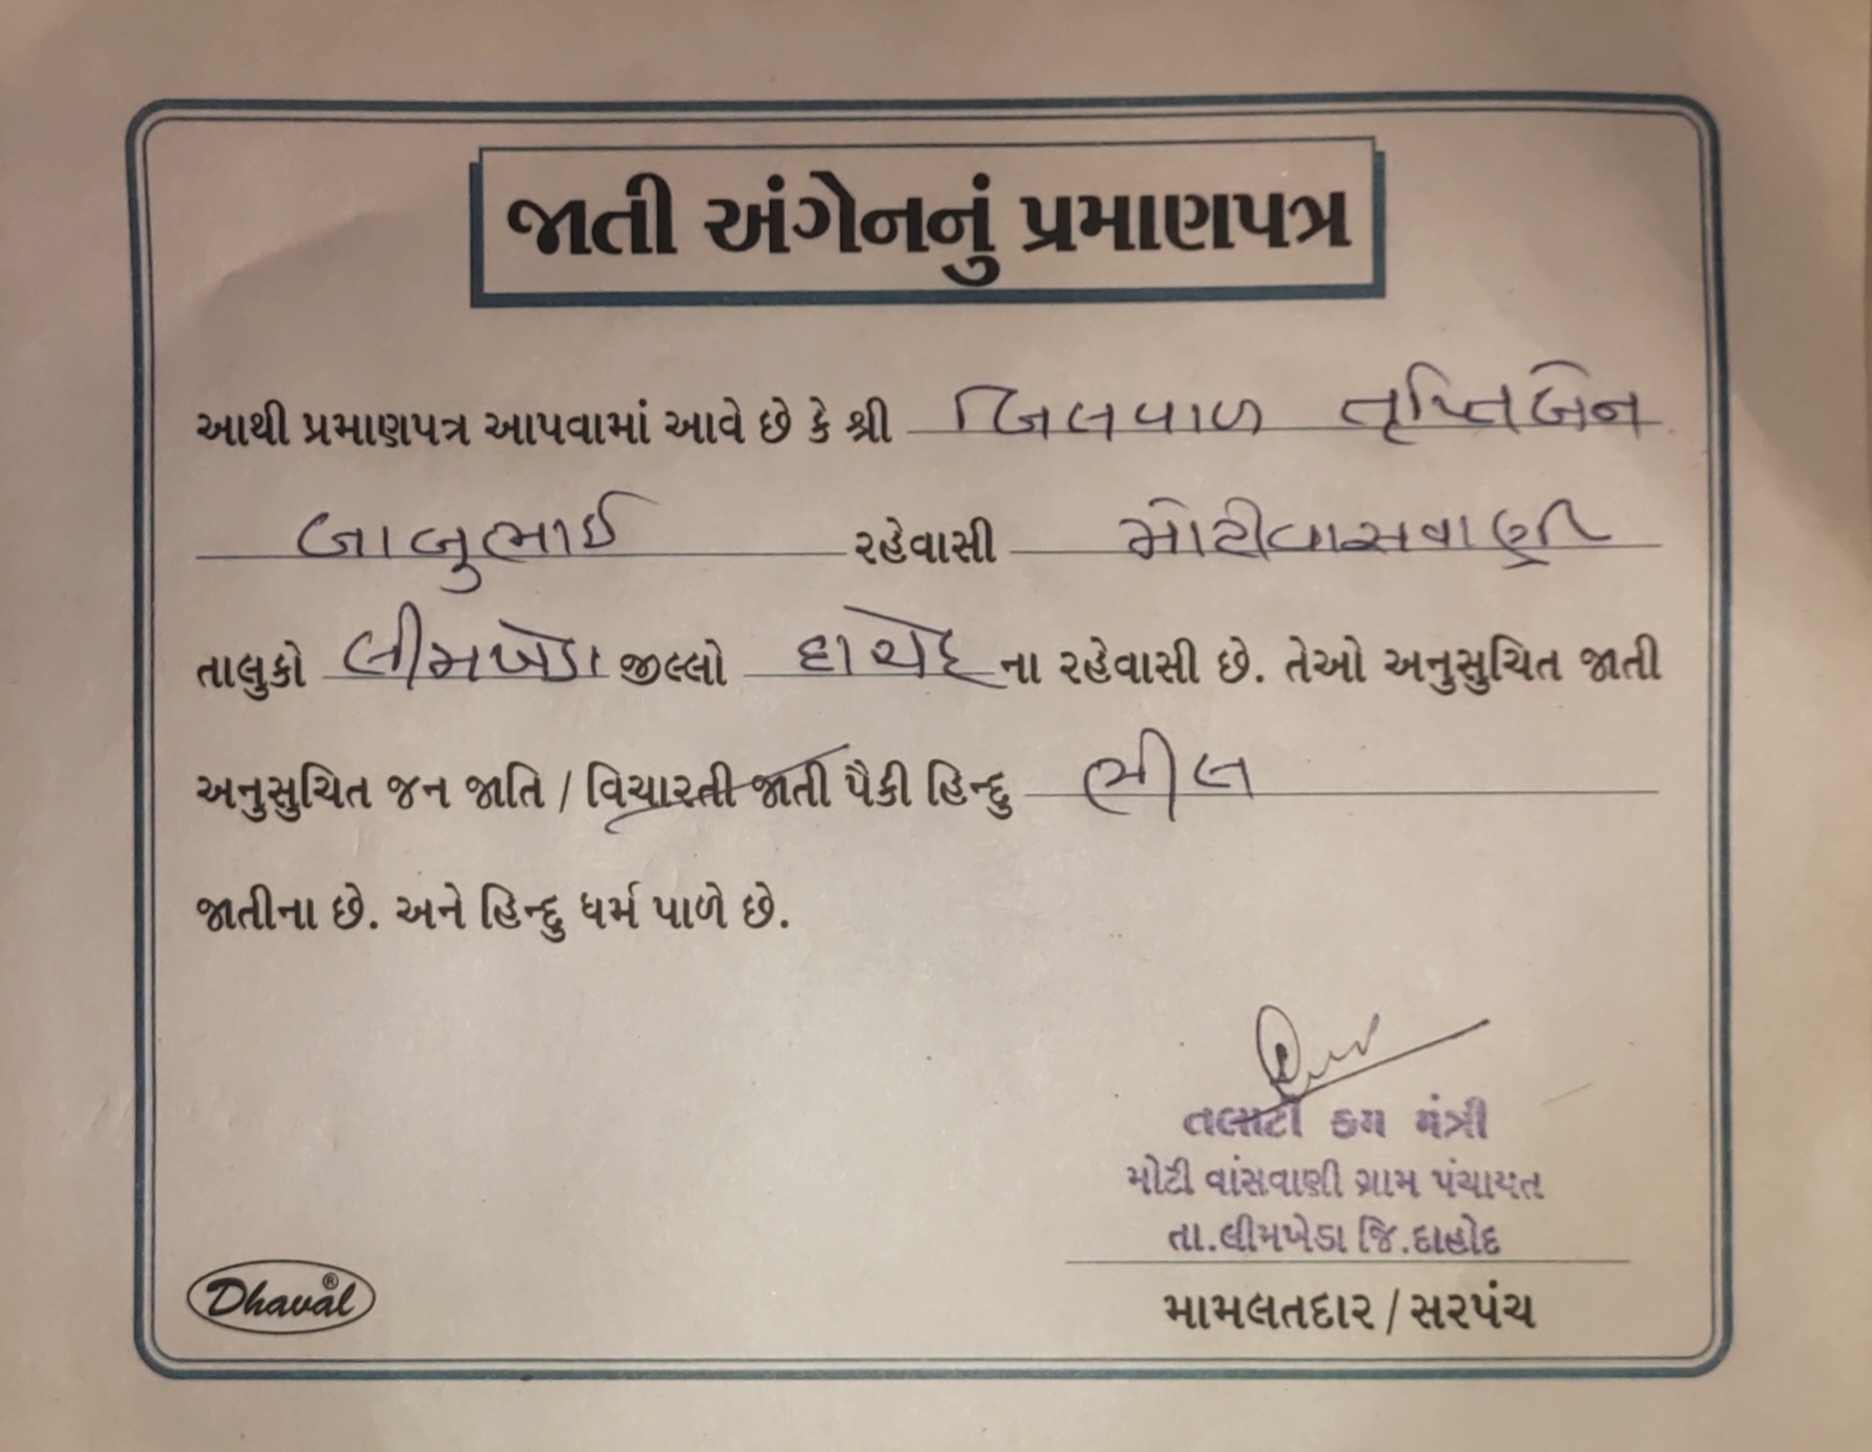 જાતી અંગેનનું પ્રમાણપત્ર
આથી પ્રમાણપત્ર આપવામાં આવે છે કે શ્રી બિલવાળ તૃપ્તિબેન
બાબુભાઈ રહેવાસી મોટીવાસવાણી
તાલુકો લીમખેડા જીલ્લો દાહોદ ના રહેવાસી છે. તેઓ અનુસુચિત જાતી
અનુસુચિત જન જાતિ / વિચારતી જાતી પૈકી હિન્દુ ભીલ
જાતીના છે. અને હિન્દુ ધર્મ પાળે છે.
તલાટી કમ મંત્રી
મોટી વાંસવાણી ગ્રામ પંચાયત
તા.લીમખેડા જિ.દાહોદ
Dhaval®
મામલતદાર / સરપંચ